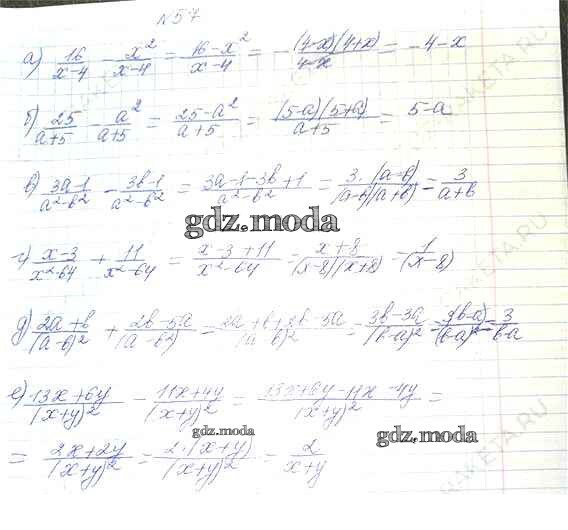 №57
а) 16/(x-4) - x²/(x-4) = (16-x²)/(x-4) = -(4-x)(4+x)/(4-x) = -4-x
б) 25/(a+5) - a²/(a+5) = (25-a²)/(a+5) = (5-a)(5+a)/(a+5) = 5-a
в) (3a-1)/(a²-b²) - (3b-1)/(a²-b²) = (3a-1-3b+1)/(a²-b²) = 3·(a-b)/(a-b)(a+b) = 3/(a+b)
gdz.moda
г) (x-3)/(x²-64) + 11/(x²-64) = (x-3+11)/(x²-64) = (x+8)/(x-8)(x+8) = 1/(x-8)
д) (2a+b)/(a-b)² + (2b-5a)/(a-b)² = (2a+b+2b-5a)/(a-b)² = (3b-3a)/(b-a)² = 3(b-a)/(b-a)² = 3/(b-a)
gdz.moda
gdz.moda
е) (13x+6y)/(x+y)² - (11x+4y)/(x+y)² = (13x+6y-11x-4y)/(x+y)² =
gdz.moda
gdz.moda
= (2x+2y)/(x+y)² = 2·(x+y)/(x+y)² = 2/(x+y)
RAKETA.RU